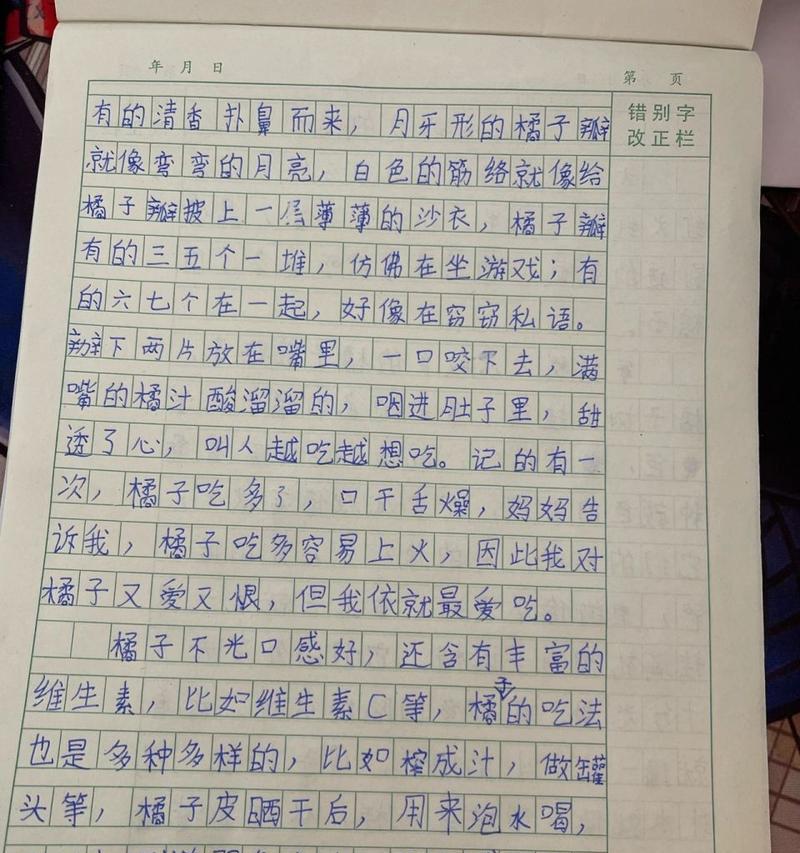 年 月 日
第 页
错别字
改正栏
有的清香扑鼻而来，月牙形的橘子瓣
就像弯弯的月亮，白色的筋络就像给
橘子瓣披上一层薄薄的沙衣，橘子瓣
有的三五个一堆，仿佛在坐游戏；有
的六七个在一起，好像在窃窃私语。
掰下两片放在嘴里，一口咬下去，满
嘴的橘汁酸溜溜的，咽进肚子里，甜
透了心，叫人越吃越想吃。记的有一
次，橘子吃多了，口干舌燥，妈妈告
诉我，橘子吃多容易上火，因此我对
橘子又爱又恨，但我依就最爱吃。
橘子不光口感好，还含有丰富的
维生素，比如维生素C等，橘子的吃法
也是多种多样的，比如榨成汁，做罐
头等，橘子皮晒干后，用来泡水喝，